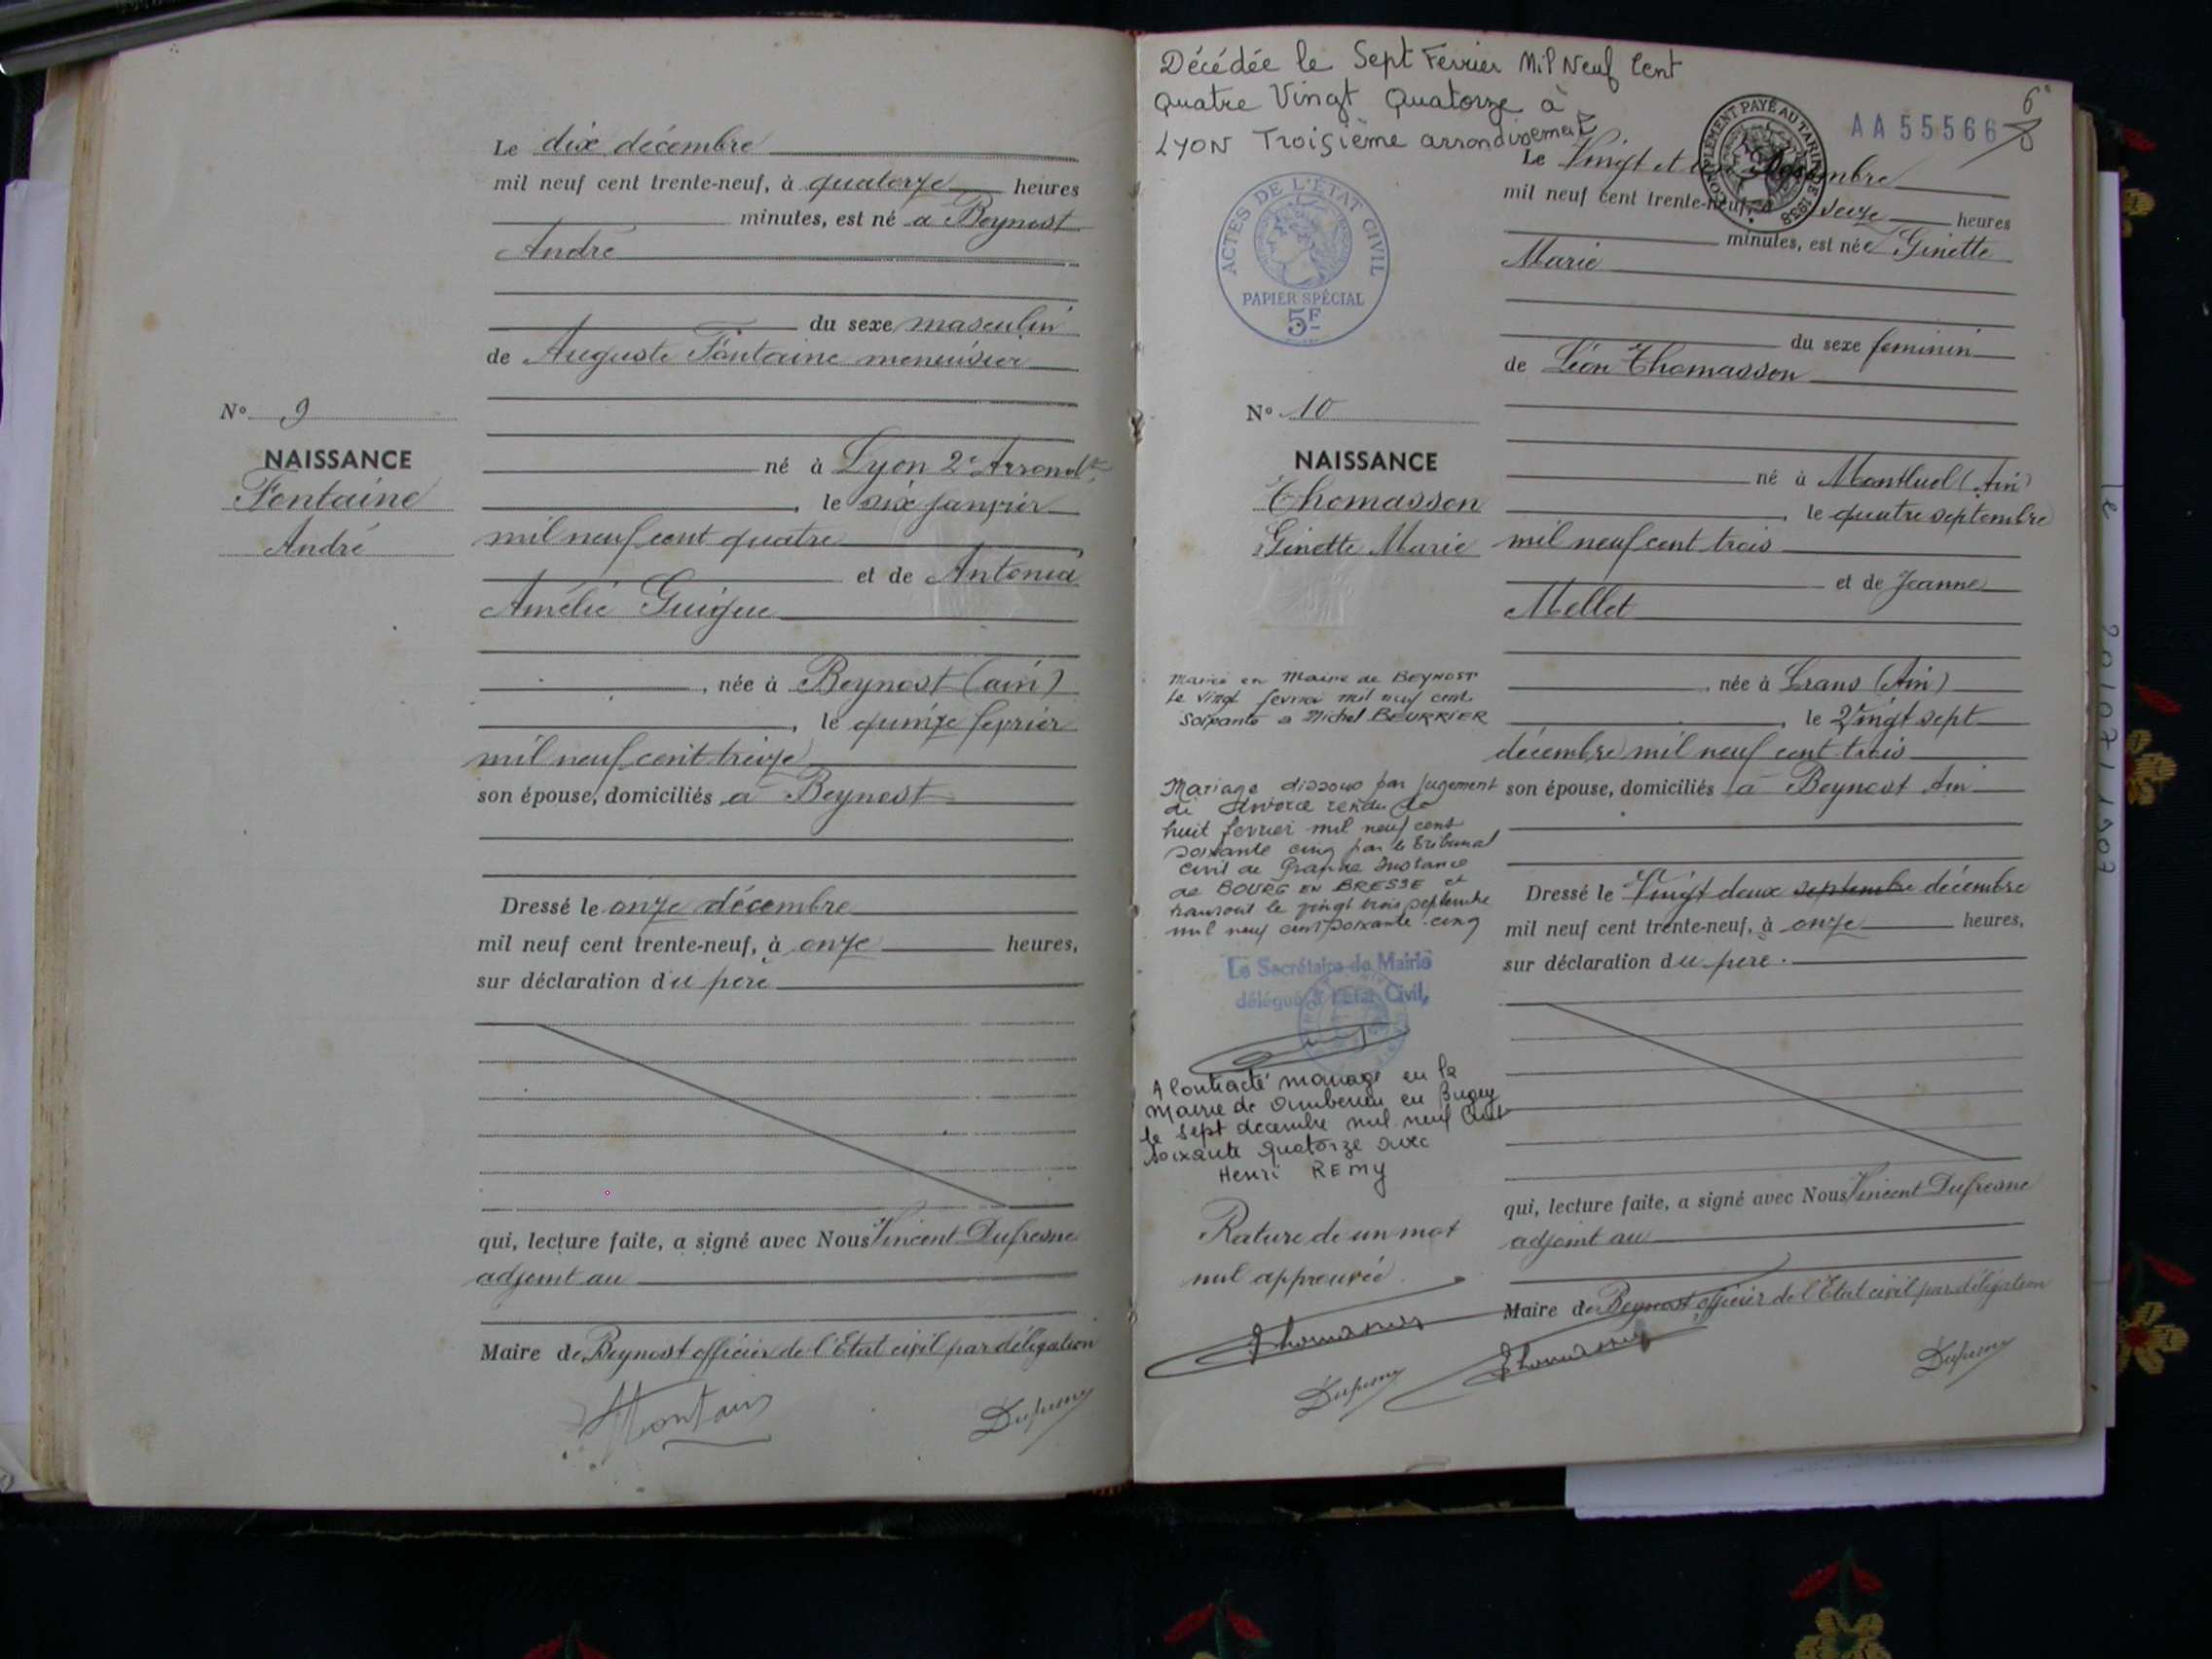 Le dix décembre
mil neuf cent trente-neuf, à quatorze heures
minutes, est né à Beynost
André
du sexe masculin
de Auguste Fontaine menuisier
né à Lyon 2e Arrondt
, le six janvier
mil neuf cent quatre
et de Antonia
Amélie Guigue
, née à Beynost (ain)
, le quinze février
mil neuf cent treize
son épouse, domiciliés à Beynost
Dressé le onze décembre
mil neuf cent trente-neuf, à onze heures,
sur déclaration du père
qui, lecture faite, a signé avec Nous Vincent Dufresne
adjoint au
Maire de Beynost officier de l'Etat civil par délégation
No 9
NAISSANCE
Fontaine
André
Décédée le Sept Février Mil Neuf Cent
Quatre Vingt Quatorze à
LYON Troisième arrondissement
AA 55566
6
COMPLÉMENT PAYÉ AU TARIF DE 1938
ACTES DE L'ÉTAT CIVIL
PAPIER SPÉCIAL
5F
No 10
NAISSANCE
Thomasson
Ginette Marie
Marié en Mairie de BEYNOST
le vingt fevrier mil neuf cent
soixante a Michel BEURRIER
Mariage dissous par jugement
de divorce rendu le
huit fevrier mil neuf cent
soixante cinq par le Tribunal
Civil de Grande Instance
de BOURG EN BRESSE et
transcrit le vingt trois septembre
mil neuf cent soixante cinq
Le Secrétaire de Mairie
délégué à l'Etat Civil,
A Contracté mariage en la
Mairie de Ambérieu en Bugey
le Sept decembre mil neuf Cent
soixante quatorze avec
Henri REMY
Rature de un mot
nul approuvée
Thomasson
Le Vingt et un Décembre
mil neuf cent trente-neuf, à seize heures
minutes, est née Ginette
Marie
du sexe feminin
de Léon Thomasson
né à Montluel (Ain)
, le quatre septembre
mil neuf cent trois
et de Jeanne
Mellet
, née à Crans (Ain)
, le Vingt sept
décembre mil neuf cent trois
son épouse, domiciliés à Beynost Ain
Dressé le Vingt deux septembre décembre
mil neuf cent trente-neuf, à onze heures,
sur déclaration du père.
qui, lecture faite, a signé avec Nous Vincent Dufresne
adjoint au
Maire de Beynost officier de l'Etat civil par délégation
Thomasson